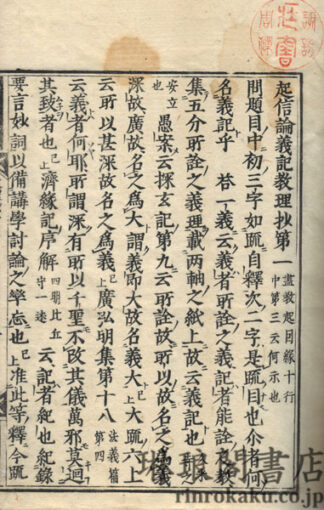 起信論義記教理抄第一 盡教起因緣十行
中第三云何示也
問題目中初三字如䟽自釋次二字是䟽目也介者何
名義記乎 荅一義云義者所詮之義記者能詮之教
集五分所詮之義理載兩軸之紙上故云義記也
安立
也 愚案云探玄記第九云所詮故所以故名之爲義
深故廣故名之爲大謂義即大故名義大已上大䟽六上
云所以甚深故名之爲義已上廣弘明集第十八 法義篇
第四
云義者何耶所謂深有所以千聖不改其儀萬邪莫迴
其致者也已上濟緣記序解 四明此丘
守一述 云記者紀也紀錄
要言妙詞以備講學討論之學忘也已上准此等釋今䟽
琳琅閣書店
rinrokaku.co.jp